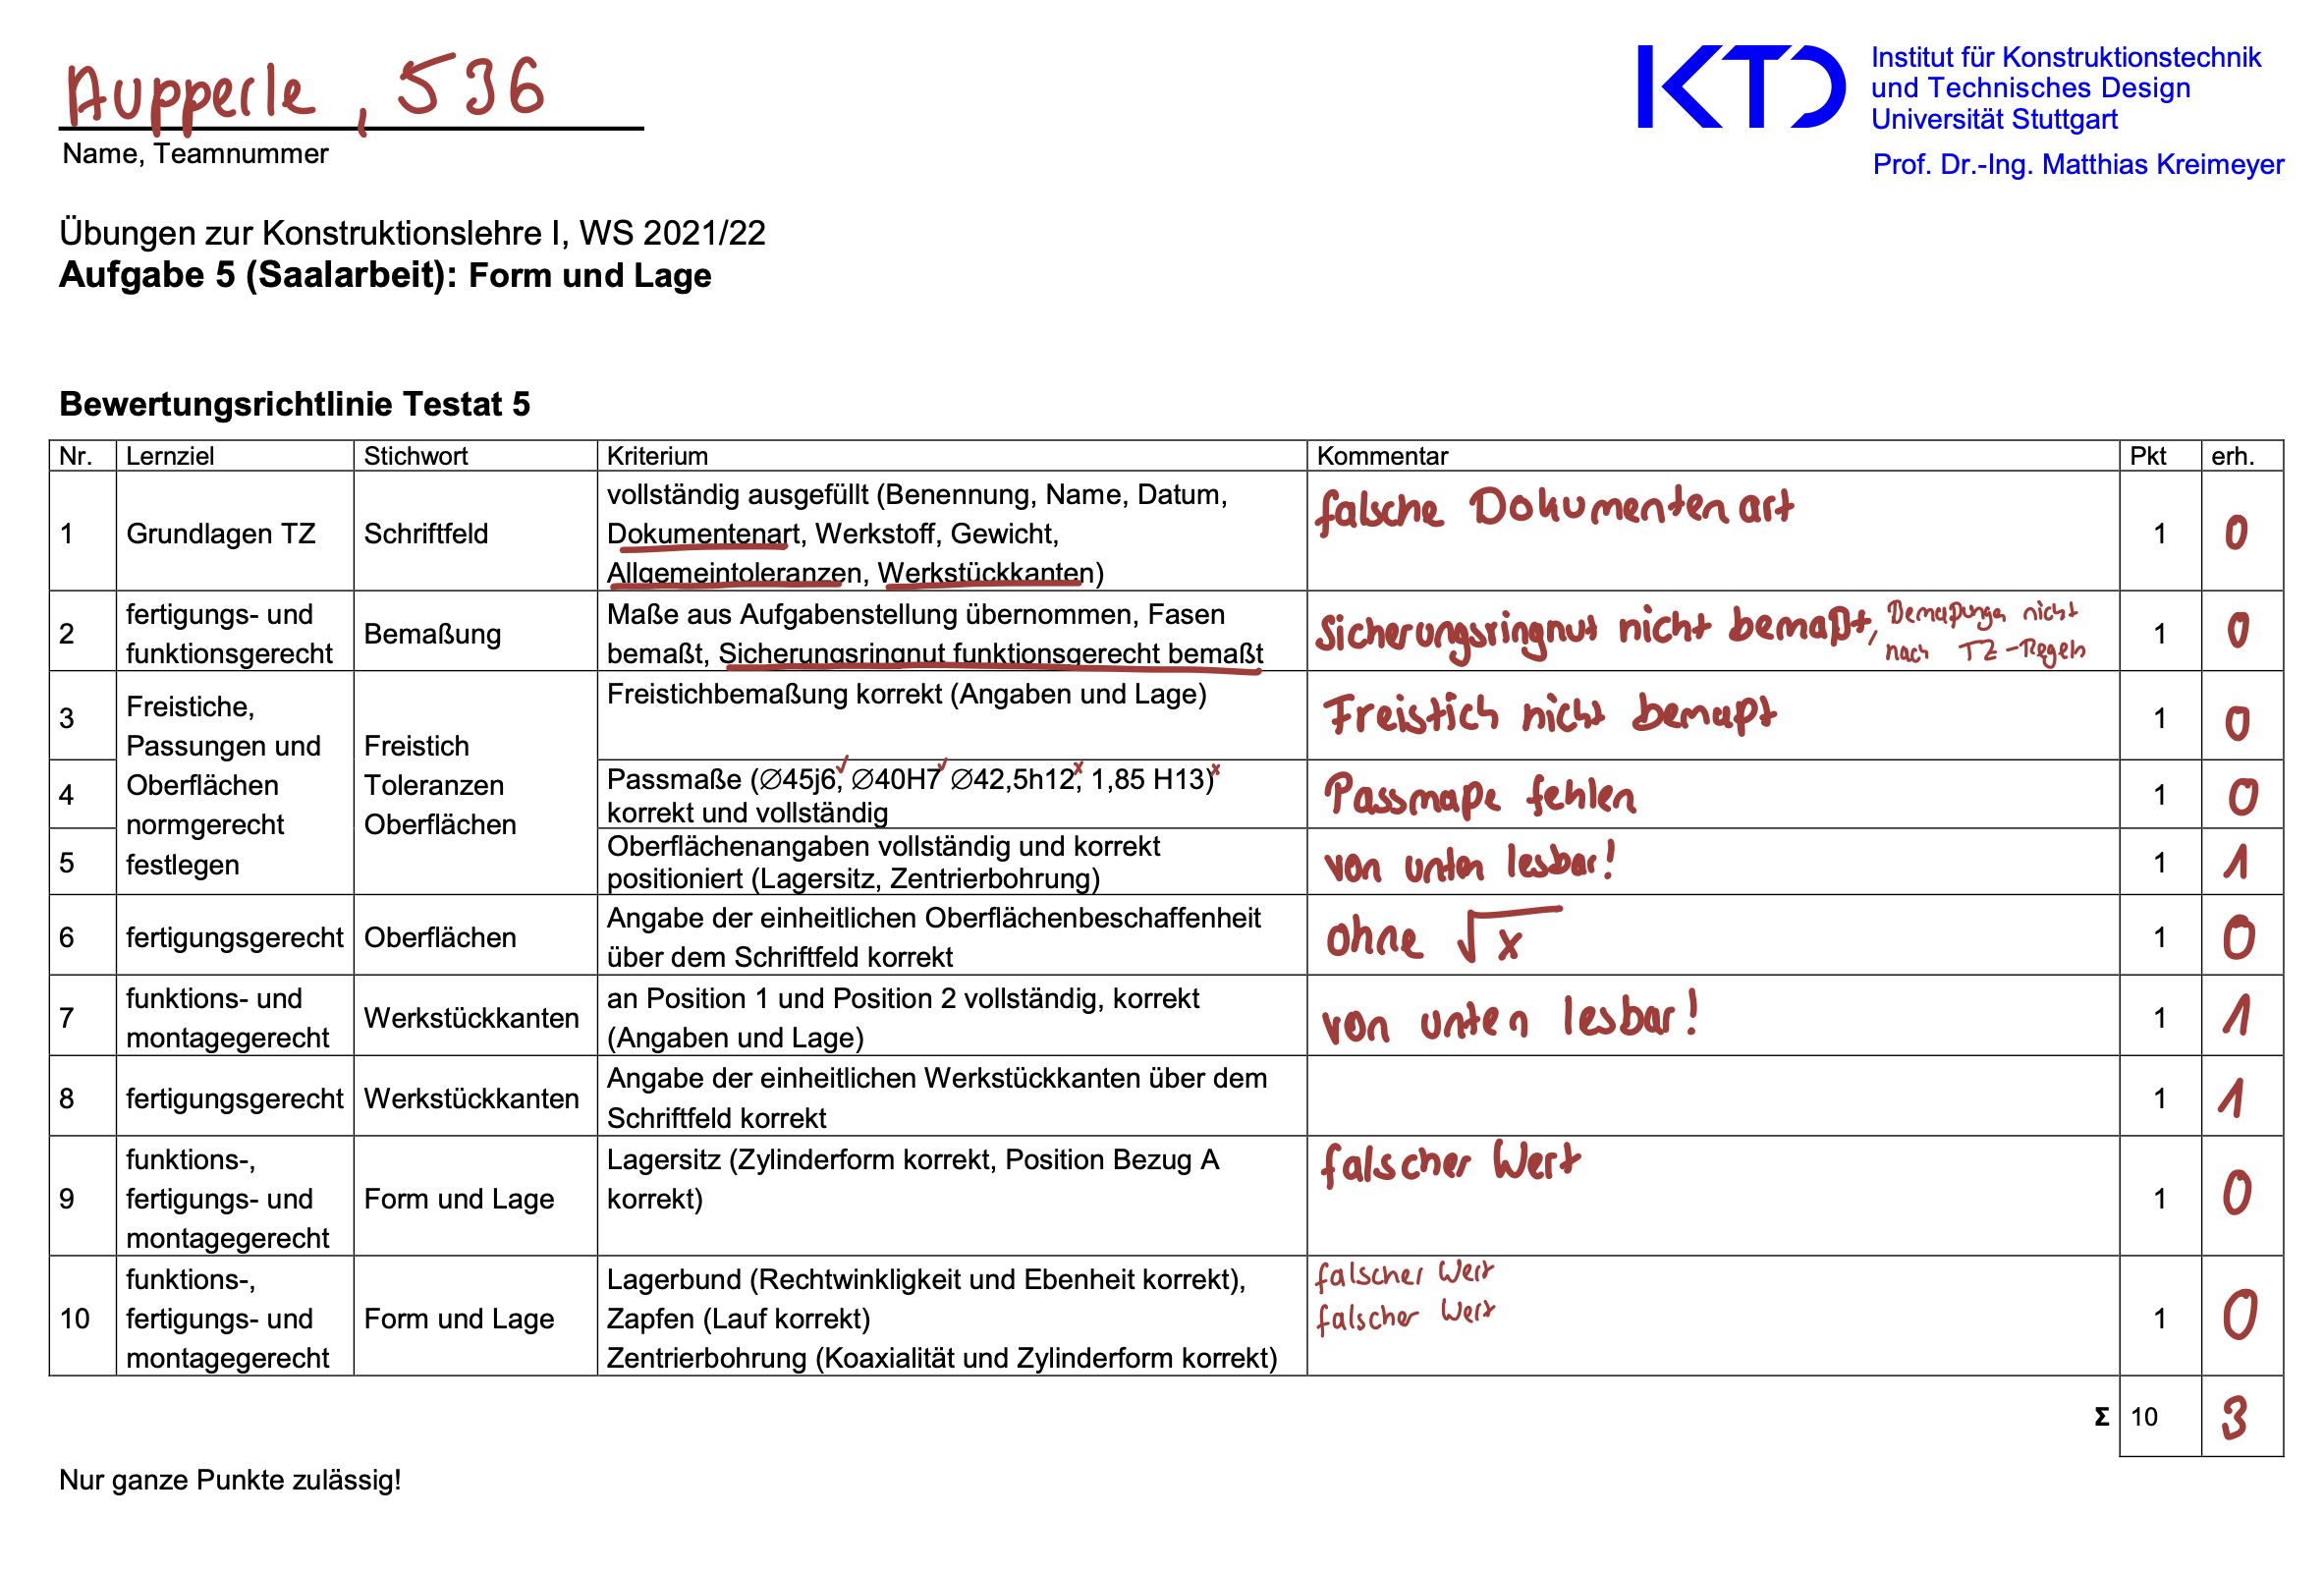 Aupperle, 536
Name, Teamnummer
KTD
Institut für Konstruktionstechnik
und Technisches Design
Universität Stuttgart
Prof. Dr.-Ing. Matthias Kreimeyer
Übungen zur Konstruktionslehre I, WS 2021/22
Aufgabe 5 (Saalarbeit): Form und Lage
Bewertungsrichtlinie Testat 5
Nr. Lernziel Stichwort Kriterium Kommentar Pkt erh.
1 Grundlagen TZ Schriftfeld
vollständig ausgefüllt (Benennung, Name, Datum,
Dokumentenart, Werkstoff, Gewicht,
Allgemeintoleranzen, Werkstückkanten)
falsche Dokumentenart
1 0
2
fertigungs- und
funktionsgerecht
Bemaßung
Maße aus Aufgabenstellung übernommen, Fasen
bemaßt, Sicherungsringnut funktionsgerecht bemaßt
Sicherungsringnut nicht bemaßt, Bemaßunge nicht
nach TZ-Regeln
1 0
3
Freistiche,
Passungen und
Oberflächen
normgerecht
festlegen
Freistich
Toleranzen
Oberflächen
Freistichbemaßung korrekt (Angaben und Lage)
Freistich nicht bemaßt
1 0
4
Passmaße (∅45j6,✓ ∅40H7✓ ∅42,5h12,x 1,85 H13)x
korrekt und vollständig
Passmaße fehlen
1 0
5
Oberflächenangaben vollständig und korrekt
positioniert (Lagersitz, Zentrierbohrung)
von unten lesbar!
1 1
6 fertigungsgerecht Oberflächen
Angabe der einheitlichen Oberflächenbeschaffenheit
über dem Schriftfeld korrekt
ohne √x
1 0
7
funktions- und
montagegerecht
Werkstückkanten
an Position 1 und Position 2 vollständig, korrekt
(Angaben und Lage)
von unten lesbar!
1 1
8 fertigungsgerecht Werkstückkanten
Angabe der einheitlichen Werkstückkanten über dem
Schriftfeld korrekt
1 1
9
funktions-,
fertigungs- und
montagegerecht
Form und Lage
Lagersitz (Zylinderform korrekt, Position Bezug A
korrekt)
falscher Wert
1 0
10
funktions-,
fertigungs- und
montagegerecht
Form und Lage
Lagerbund (Rechtwinkligkeit und Ebenheit korrekt),
Zapfen (Lauf korrekt)
Zentrierbohrung (Koaxialität und Zylinderform korrekt)
falscher Wert
falscher Wert
1 0
Σ 10 3
Nur ganze Punkte zulässig!